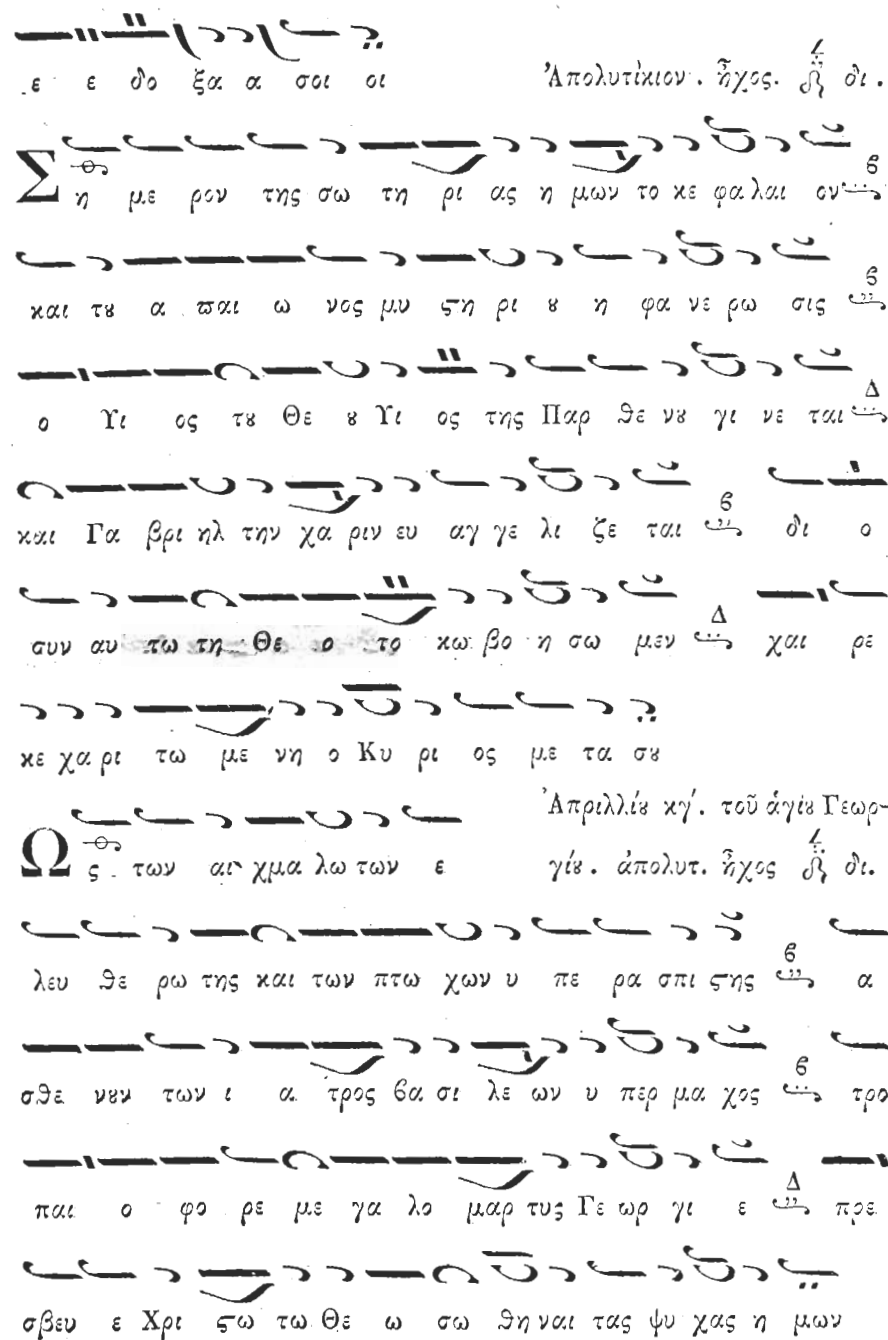 ε ε δο ξα α σοι οι Ἀπολυτίκιον. ἦχος. δι.
Ση με ρον της σω τη ρι ας η μων το κε φα λαι ον β
και τȣ α παι ω νος μυ ϛη ρι ȣ η φα νε ρω σις β
ο Υι ος τȣ Θε ȣ Υι ος της Παρ θε νȣ γι νε ται Δ
και Γα βρι ηλ την χα ριν ευ αγ γε λι ζε ται β δι ο
συν αυ τω τη Θε ο το κω βο η σω μεν Δ χαι ρε
κε χα ρι τω με νη ο Κυ ρι ος με τα σȣ
Ἀπριλλίȣ κγ΄. τοῦ ἁγίȣ Γεωρ-
Ως των αι χμα λω των ε γίȣ. ἀπολυτ. ἦχος δι.
λευ θε ρω της και των πτω χων υ πε ρα σπι ϛης β α
σθε νȣν των ι α τρος βα σι λε ων υ περ μα χος β τρο
παι ο φο ρε με γα λο μαρ τυς Γε ωρ γι ε Δ πρε
σβευ ε Χρι ϛω τω Θε ω σω θη ναι τας ψυ χας η μων